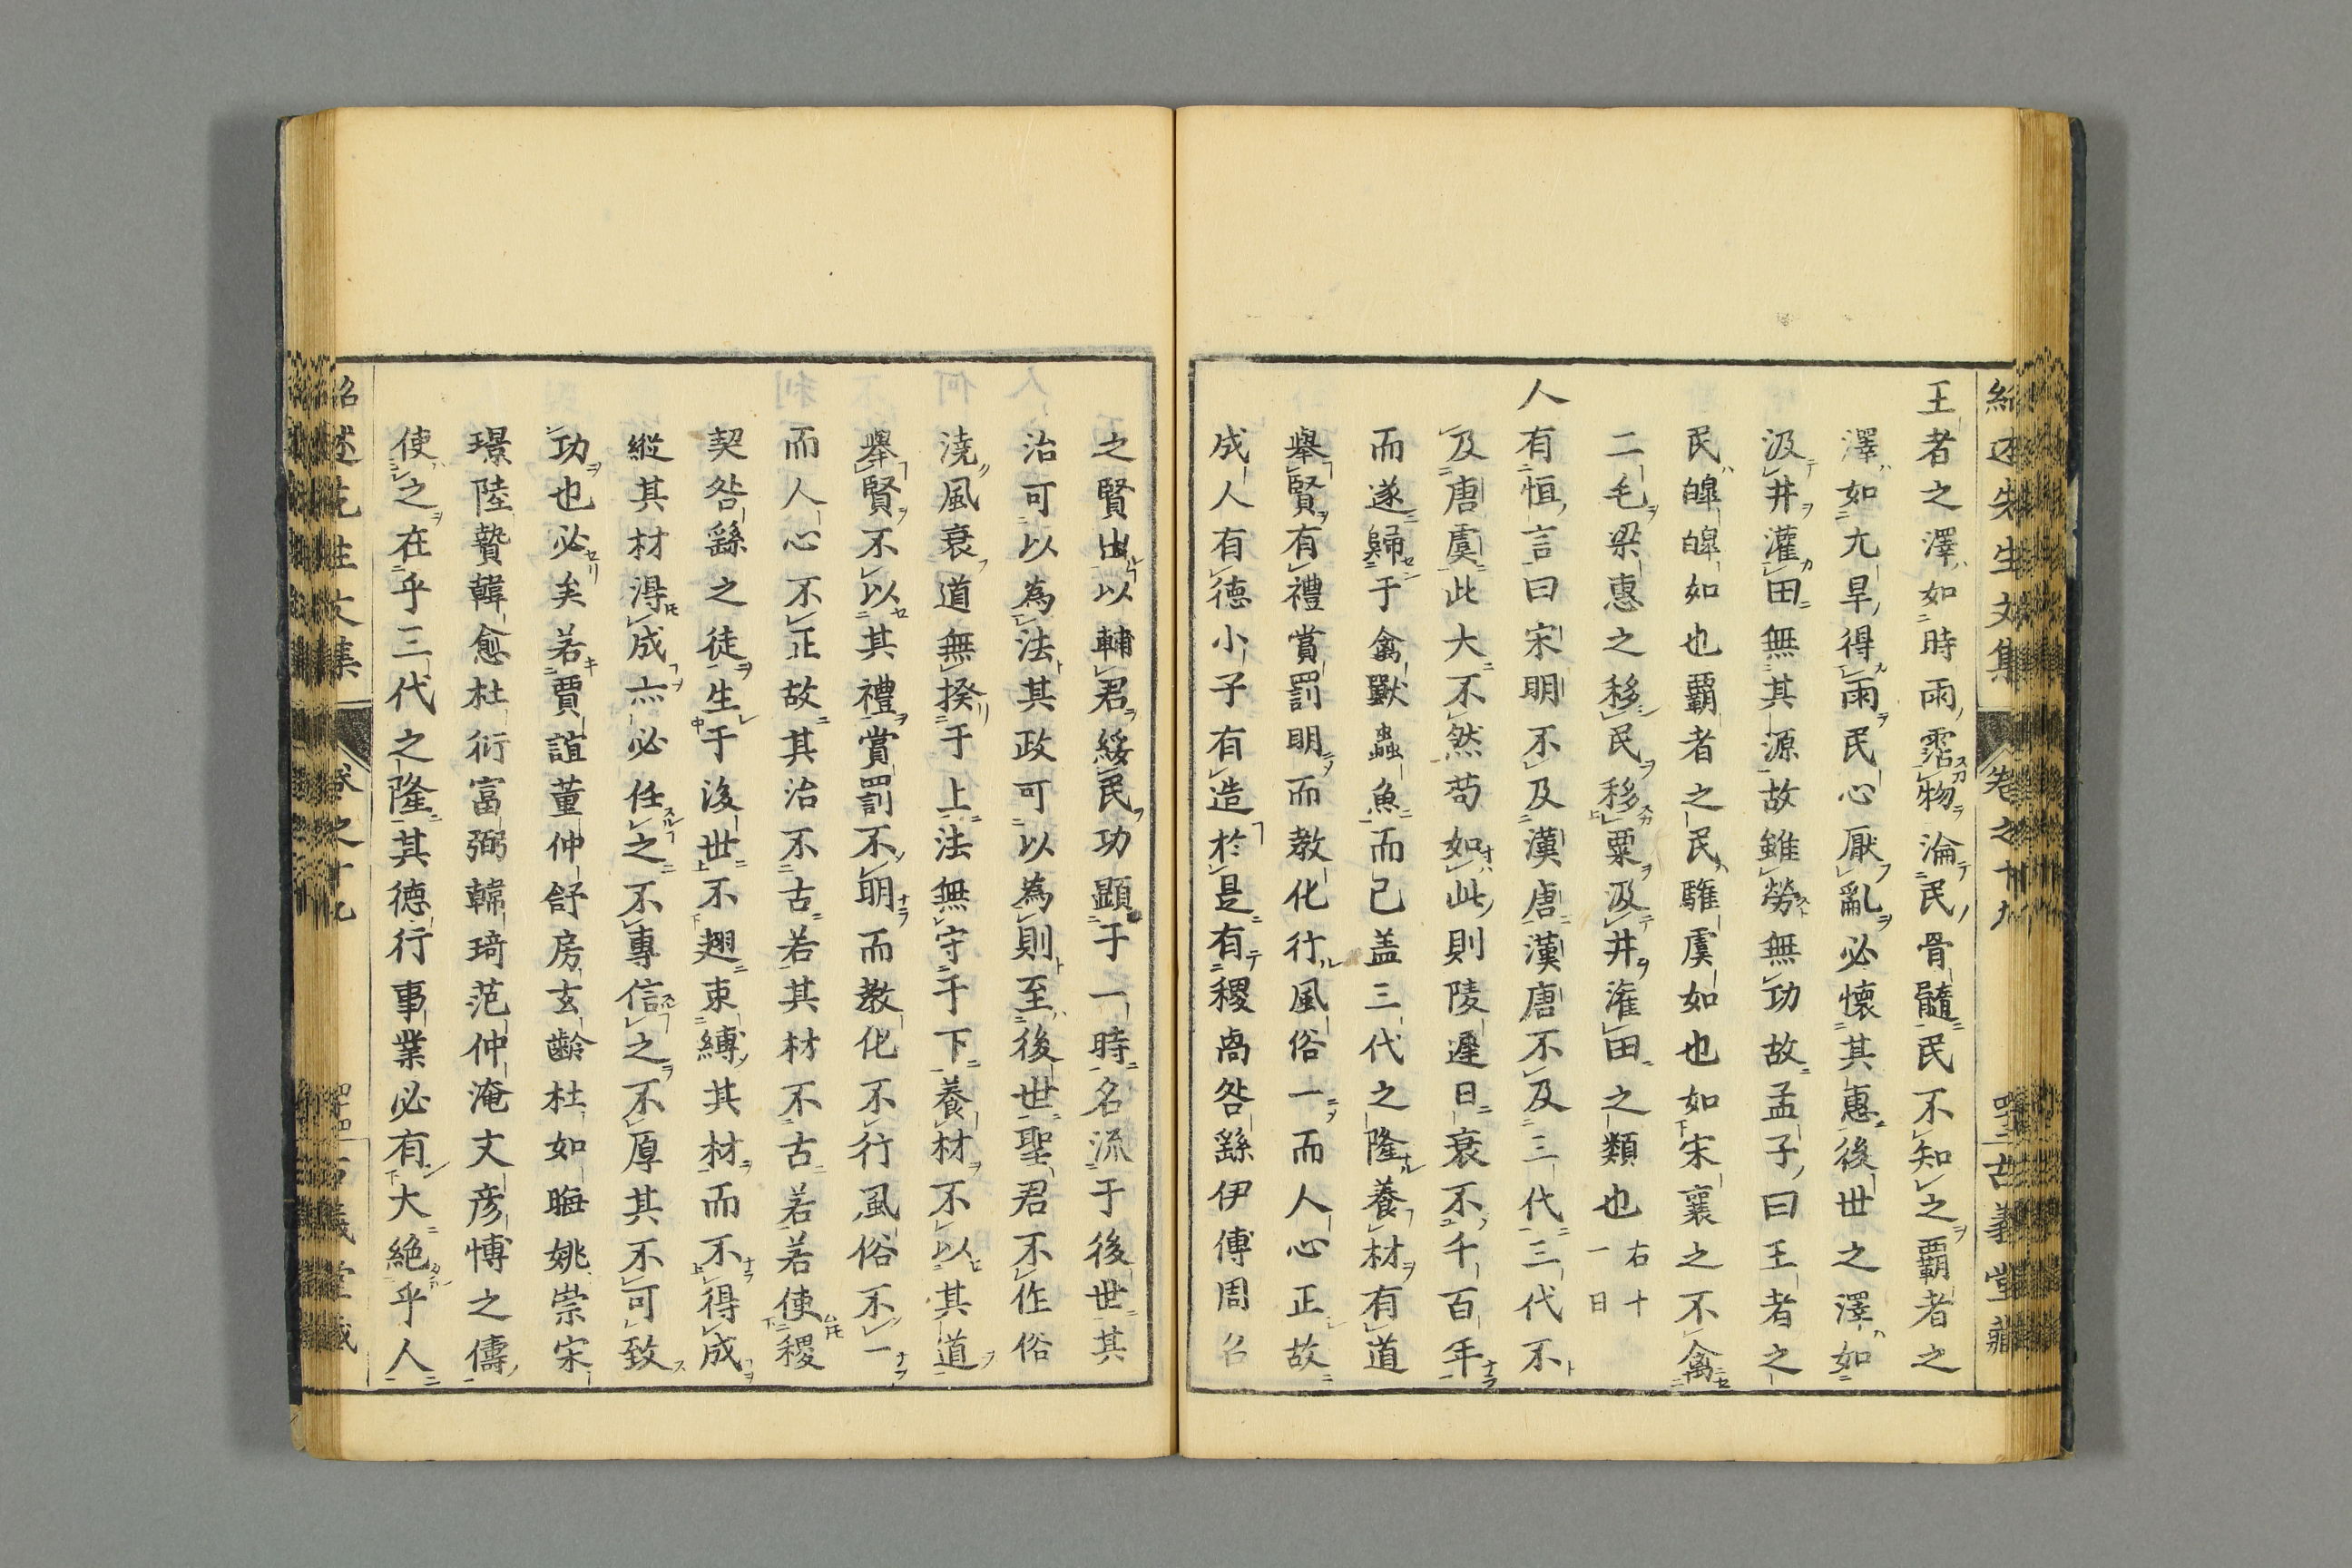 紹述先生文集 卷之十九 古義堂藏
王者之澤如時雨霑物淪民骨髓民不知之霸者之
澤如亢旱得雨民心厭亂必懷其惠後世之澤如
汲井灌田無其源故雖勞無功故孟子曰王者之
民皥皥如也霸者之民驩虞如也如宋襄之不禽
二毛梁惠之移民移粟汲井灌田之類也右十一日
人有恒言曰宋明不及漢唐漢唐不及三代三代不
及唐虞此大不然苟如此則陵遲日衰不千百年
而遂歸于禽獸蟲魚而已盖三代之隆養材有道
舉賢有禮賞罰明而教化行風俗一而人心正故
成人有德小子有造於是有稷卨咎繇伊傅周召
之賢出以輔君綏民功顯于一時名流于後世其
治可以為法其政可以為則至後世聖君不作俗
澆風衰道無揆于上法無守于下養材不以其道
舉賢不以其禮賞罰不明而教化不行風俗不一
而人心不正故其治不古若其材不古若若使稷
契咎繇之徒生于後世不翅束縛其材而不得成
縱其材得成亦必任之不專信之不厚其不可致
功也必矣若賈誼董仲舒房玄齡杜如晦姚崇宋
璟陸贄韓愈杜衍富弼韓琦范仲淹文彦博之儔
使之在乎三代之隆其德行事業必有大絶乎人
紹述先生文集 卷之十九 古義堂藏